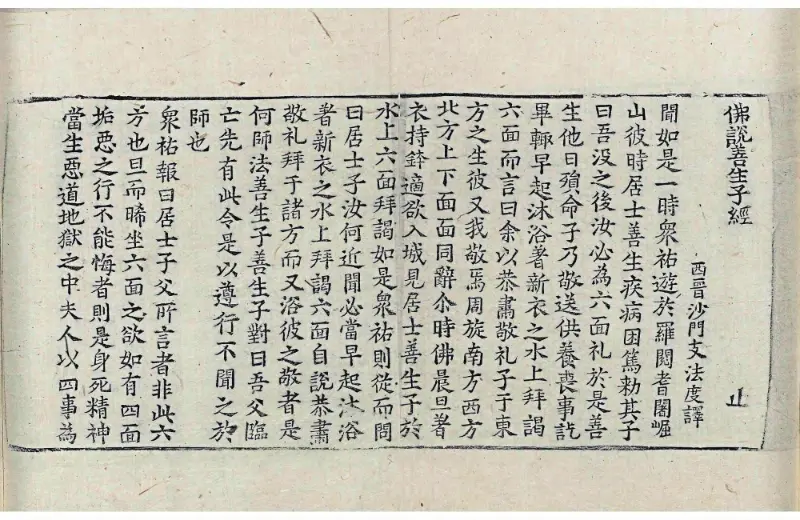 佛説善生子經 止
西晉沙門支法度譯
聞如是一時衆祐遊於羅閱耆闍崛
山彼時居士善生疾病困篤勑其子
曰吾没之後汝必為六面礼於是善
生他日殞命子乃敬送供養喪事訖
畢輙早起沐浴著新衣之水上拜謁
六面而言曰余以恭肅敬礼子于東
方之生彼又我敬焉周旋南方西方
北方上下面面同辭尒時佛晨旦著
衣持鉢適欲入城見居士善生子於
水上六面拜謁如是衆祐則從而問
曰居士子汝何近聞必當早起沐浴
著新衣之水上拜謁六面自說恭肅
敬礼拜于諸方而又浴彼之敬者是
何師法善生子善生子對曰吾父臨
亡先有此令是以遵行不聞之於
師也
衆祐報曰居士子父所言者非此六
方也旦而晞坐六面之欲如有四面
垢惡之行不能悔者則是身死精神
當生惡道地獄之中夫人以四事為